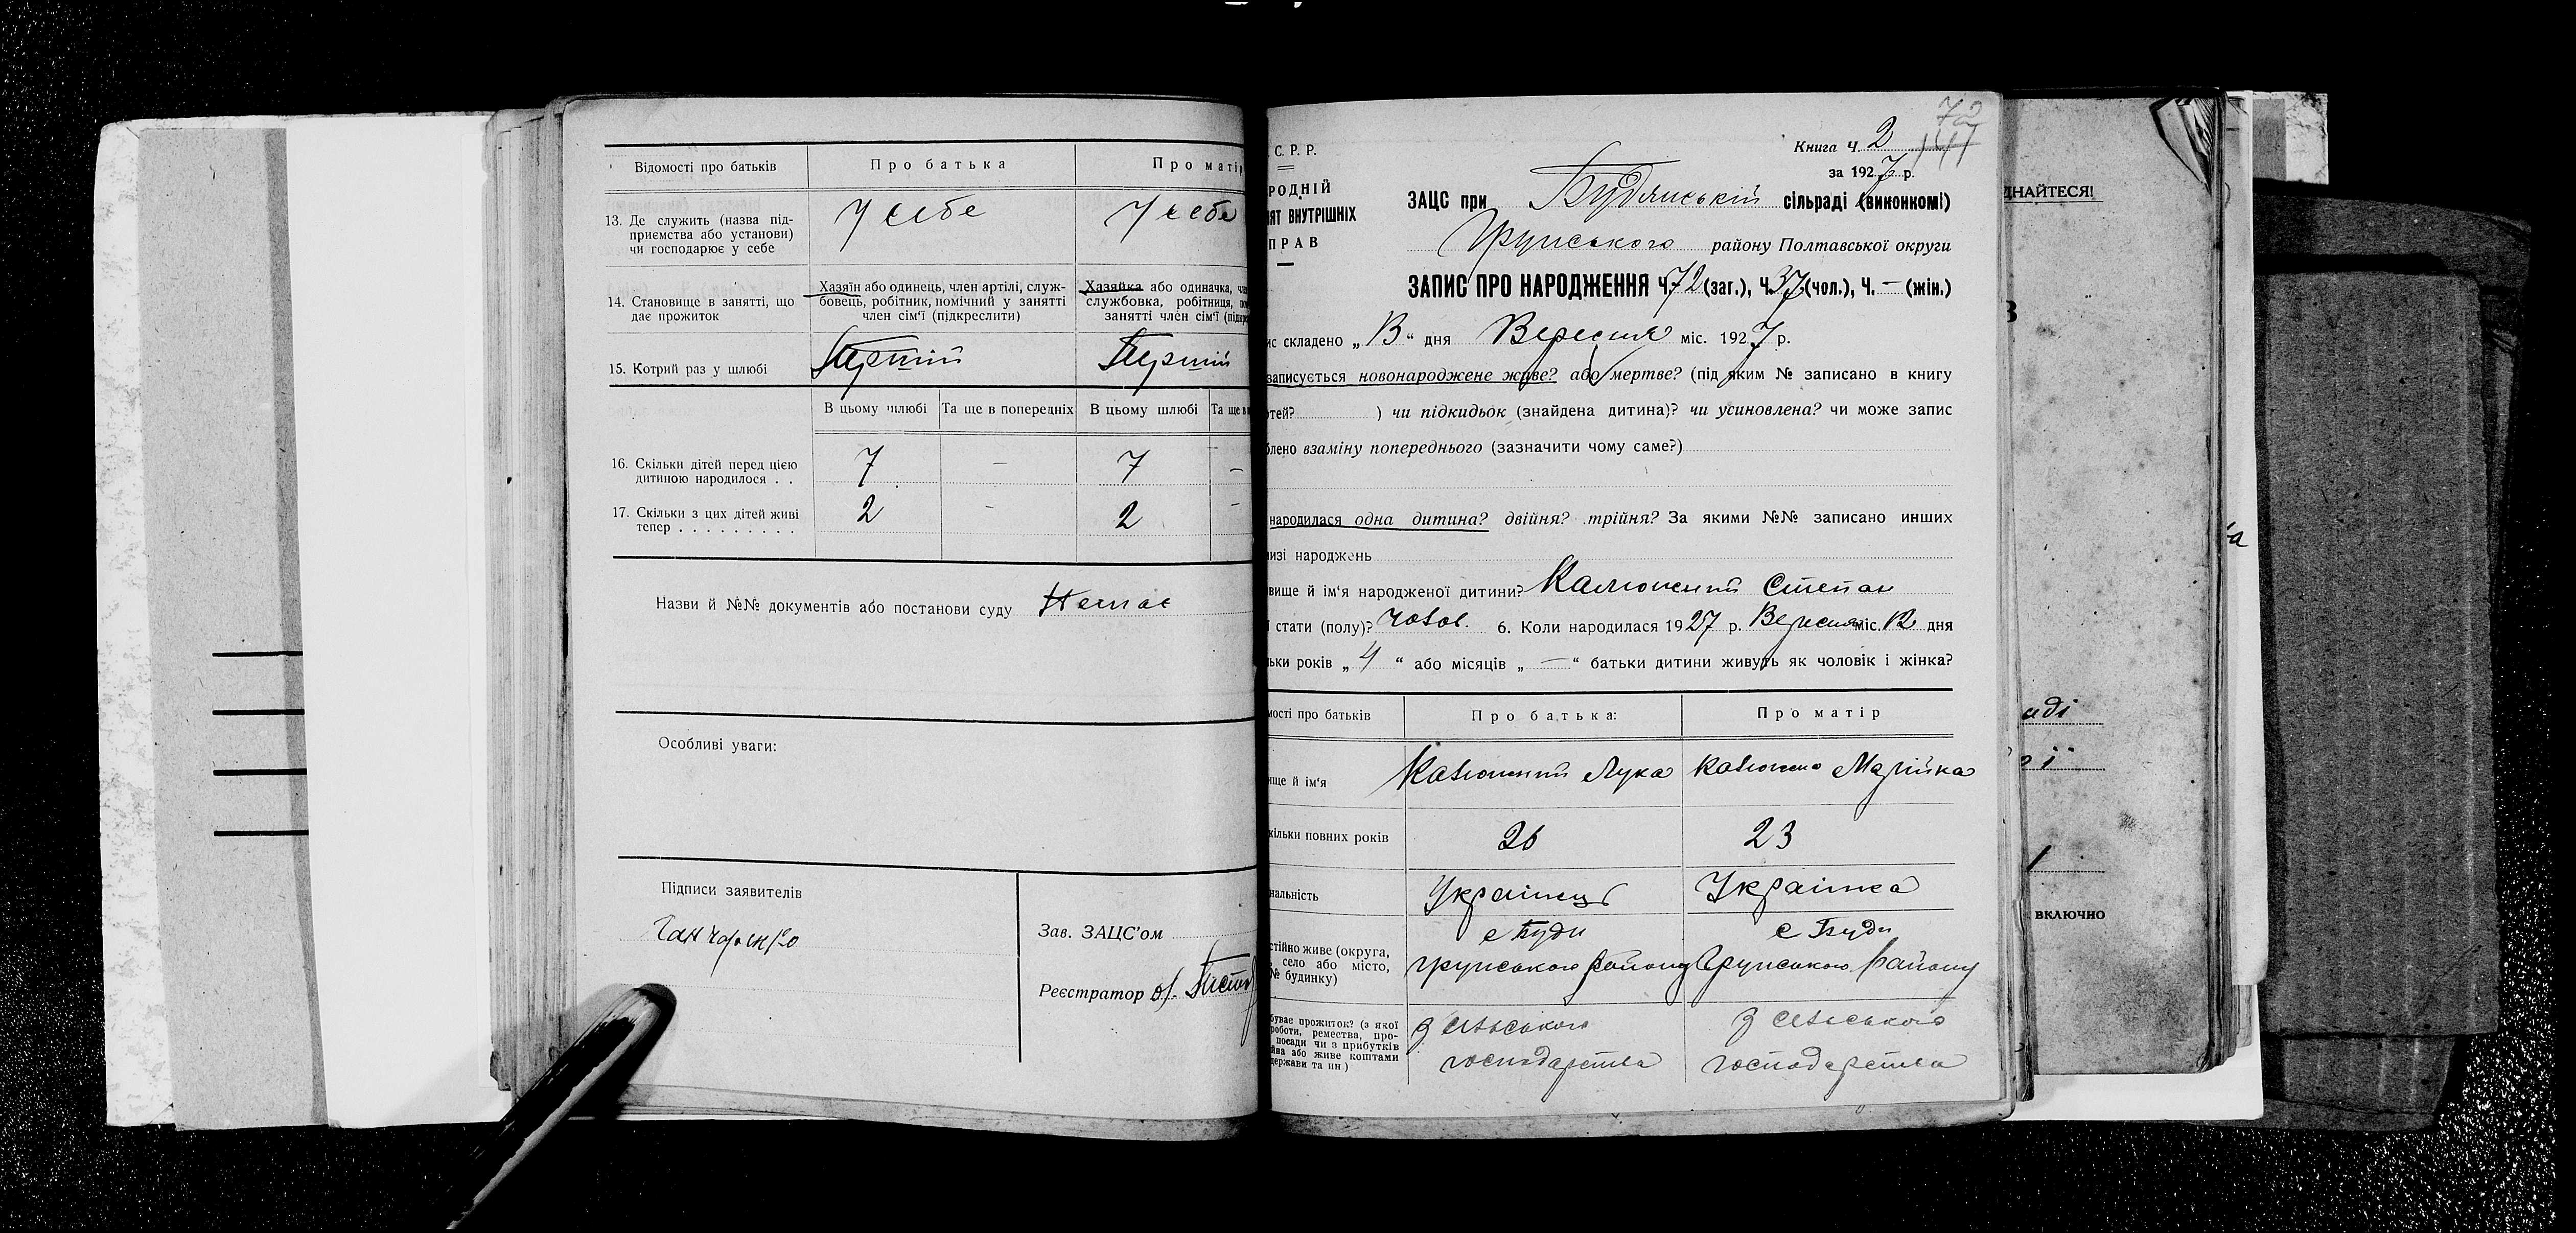 Відомості про батьків
Про батька
Про матір
13. Де служить (назва під-
приємства або установи)
чи господарює у себе
У себе
У себе
14. Становище в занятті, що
дає прожиток
Хазяїн або одинець, член артілі, служ-
бовець, робітник, помічний у занятті
член сім'ї (підкреслити)
Хазяйка або одиначка, чле
службовка, робітниця, по
занятті член сім'ї (підкре
15. Котрий раз у шлюбі
Перший
Перший
В цьому шлюбі
Та ще в попередніх
В цьому шлюбі
Та ще в
16. Скільки дітей перед цією
дитиною народилося . .
7 — 7 —
17. Скільки з цих дітей живі
тепер . . . . . . . . .
2 - 2 -
Назви й №№ документів або постанови суду Немає
Особливі уваги:
Підписи заявителів
Ганчаренко
Зав. ЗАЦС'ом
Реєстратор
72
147
. С. Р. Р.
РОДНІЙ
ІЯТ ВНУТРІШНІХ
ПРАВ
Книга ч. 2
за 1927 р.
ЗАЦС при Будянській сільраді (виконкомі)
Грунського району Полтавської округи
ЗАПИС ПРО НАРОДЖЕННЯ Ч. 72 (заг.), Ч. 37 (чол.), Ч. — (жін.)
ис складено „ 13 “ дня Вересня міс. 1927 р.
записується новонароджене живе? або мертве? (під яким № записано в книгу
ртей? ) чи підкидьок (знайдена дитина)? чи усиновлена? чи може запис
блено взаміну попереднього (зазначити чому саме?)
народилася одна дитина? двійня? трійня? За якими №№ записано инших
изі народжень
вище й ім'я народженої дитини? Калюжний Степан
ї стати (полу)? чолов. 6. Коли народилася 1927 р. Вересня міс. 12 дня
льки років „ 4 “ або місяців „ — “ батьки дитини живуть як чоловік і жінка?
мості про батьків
Про батька:
Про матір
ище й ім'я
Калюжний Лука
Калюжна Марійка
кільки повних років
26
23
нальність
Українець
Українка
стійно живе (округа,
, село або місто,
№ будинку)
с Буди
Грунського району
с Буди
Грунського району
буває прожиток? (з якої
роботи, ремества, про-
посади чи з прибутків
йва або живе коштами
держави та ин)
З сільського
господарства
З сільського
господарства
ДНАЙТЕСЯ!
В
аді
ії
включно